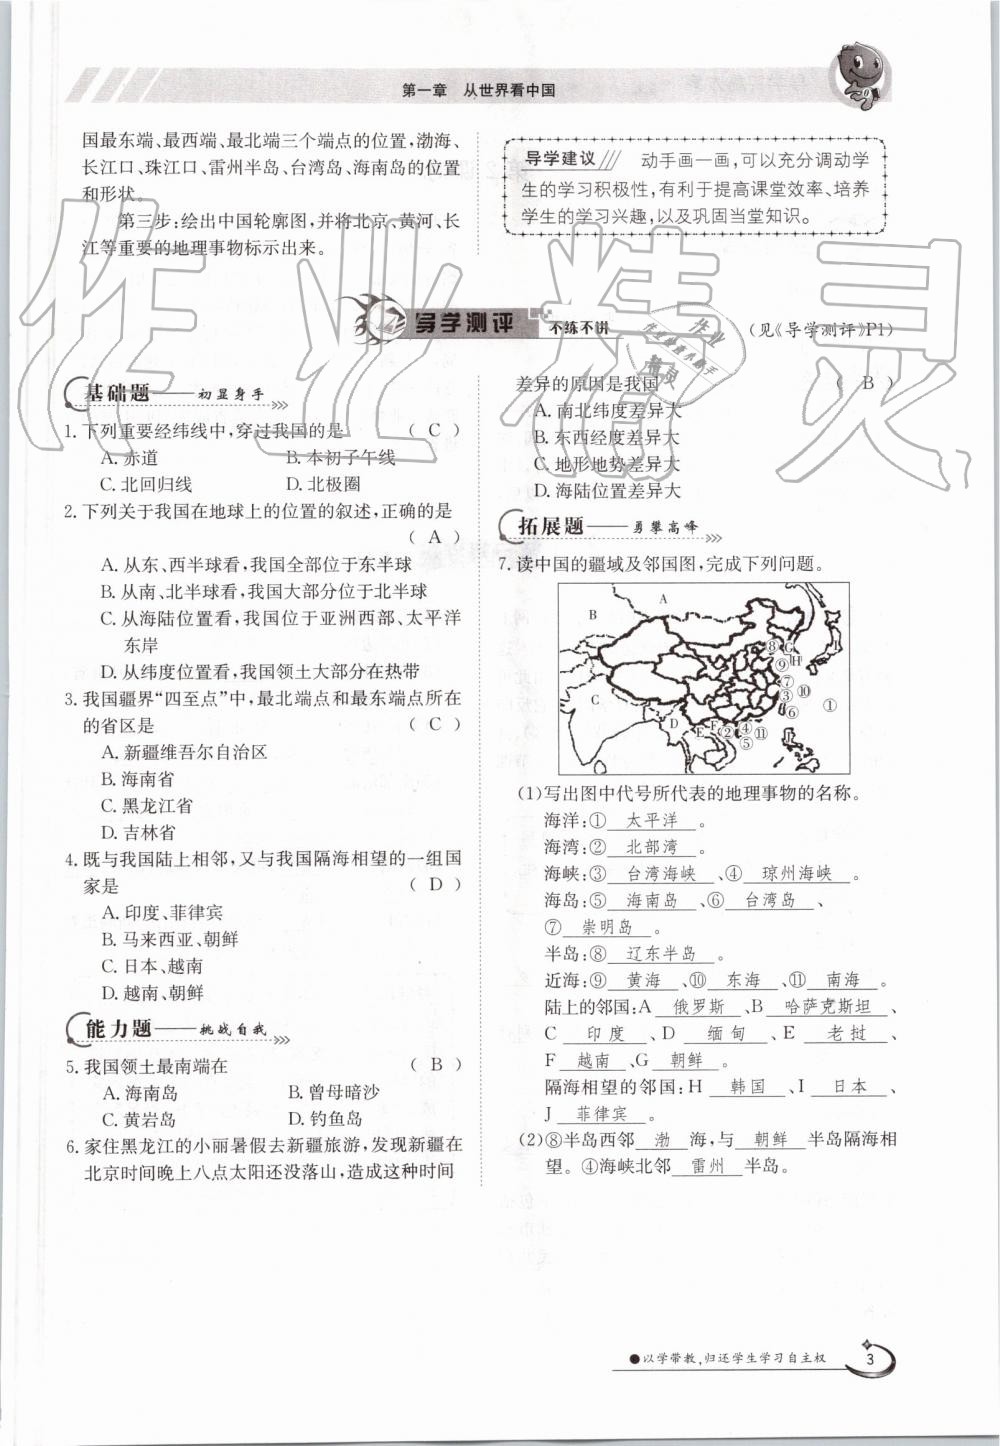 第一章　从世界看中国
国最东端、最西端、最北端三个端点的位置,渤海、
长江口、珠江口、雷州半岛、台湾岛、海南岛的位置
和形状。
第三步:绘出中国轮廓图,并将北京、黄河、长
江等重要的地理事物标示出来。
导学建议 动手画一画,可以充分调动学
生的学习积极性,有利于提高课堂效率、培养
学生的学习兴趣,以及巩固当堂知识。
导学测评 不练不讲 (见《导学测评》P1)
基础题——初显身手
1. 下列重要经纬线中,穿过我国的是 ( C )
A. 赤道 B. 本初子午线
C. 北回归线 D. 北极圈
2. 下列关于我国在地球上的位置的叙述,正确的是
( A )
A. 从东、西半球看,我国全部位于东半球
B. 从南、北半球看,我国大部分位于北半球
C. 从海陆位置看,我国位于亚洲西部、太平洋
东岸
D. 从纬度位置看,我国领土大部分在热带
3. 我国疆界“四至点”中,最北端点和最东端点所在
的省区是 ( C )
A. 新疆维吾尔自治区
B. 海南省
C. 黑龙江省
D. 吉林省
4. 既与我国陆上相邻,又与我国隔海相望的一组国
家是 ( D )
A. 印度、菲律宾
B. 马来西亚、朝鲜
C. 日本、越南
D. 越南、朝鲜
能力题——挑战自我
5. 我国领土最南端在 ( B )
A. 海南岛 B. 曾母暗沙
C. 黄岩岛 D. 钓鱼岛
6. 家住黑龙江的小丽暑假去新疆旅游,发现新疆在
北京时间晚上八点太阳还没落山,造成这种时间
差异的原因是我国 ( B )
A. 南北纬度差异大
B. 东西经度差异大
C. 地形地势差异大
D. 海陆位置差异大
拓展题——勇攀高峰
7. 读中国的疆域及邻国图,完成下列问题。
A
B
⑧ G
⑨ H
I
⑦
③ ⑩
C
⑥ ①
D
E F ② ④ ⑪
⑤
J
(1)写出图中代号所代表的地理事物的名称。
海洋:① 太平洋 。
海湾:② 北部湾 。
海峡:③ 台湾海峡 、④ 琼州海峡 。
海岛:⑤ 海南岛 、⑥ 台湾岛 、
⑦ 崇明岛 。
半岛:⑧ 辽东半岛 。
近海:⑨ 黄海 、⑩ 东海 、⑪ 南海 。
陆上的邻国:A 俄罗斯 、B 哈萨克斯坦 、
C 印度 、D 缅甸 、E 老挝 、
F 越南 、G 朝鲜 。
隔海相望的邻国:H 韩国 、I 日本 、
J 菲律宾 。
(2)⑧半岛西邻 渤 海,与 朝鲜 半岛隔海相
望。④海峡北邻 雷州 半岛。
●以学带教,归还学生学习自主权
3
作业精灵